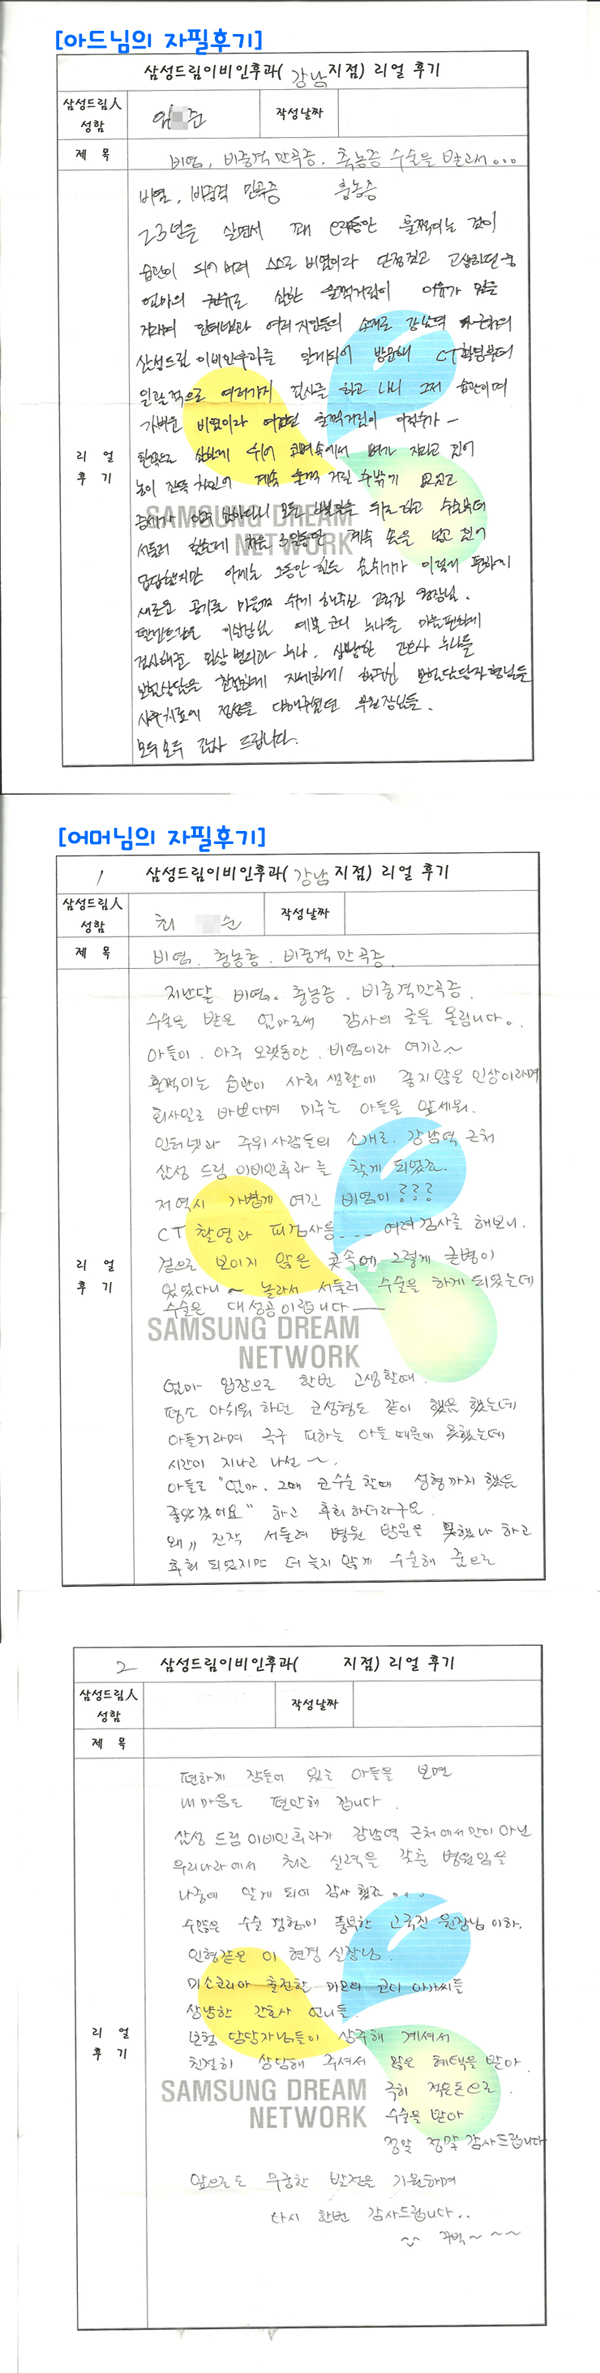 [아드님의 자필후기]
삼성드림이비인후과( 강남 지점) 리얼 후기
삼성드림人 성함
임 순
작성날짜
제 목
비염, 비중격 만곡증. 축농증 수술을 받고서...
비염, 비중격 만곡증 충농증
23년을 살면서 꽤 오랫동안 훌쩍이는 것이
습관이 되어버려 스스로 비염이라 단정짓고 고생하던 중
엄마의 권유로 심한 훌쩍거림이 이유가 있을
거라며 인터넷과 여러 지인들의 소개로 강남역 근처의
삼성드림 이비인후과를 알게되어 방문해 CT촬영부터
일괄적으로 여러가지 검사를 하고 나니 그저 습관이며
가벼운 비염이라 여겼던 훌쩍거림이
리 얼
후 기
한쪽으로 심하게 휘어 코벽속에서 뼈가 자라고 있어
농이 잔뜩 차있어 계속 훌쩍 거릴 수밖에 없었고
모든 수술부터
서둘러 처음 3일동안 계속 솜을 넣고 있어
답답했지만 이제는 그동안 힘든 숨쉬기가 이렇게 편하게
새로운 공기를 마음껏 쉬게 해주신 고국진 원장님.
실장님 예쁜 코디 누나들 마음편하게
검사해준 임상병리과 누나. 상냥한 간호사 누나들
보험상담은 친절하게 자세하게 해주신 보험담당자 형님들
사후치료에 정성을 다해주셨던 부원장님들.
모두모두 감사 드립니다.
[어머님의 자필후기]
1 삼성드림이비인후과( 강남 지점) 리얼 후기
삼성드림人 성함
최 순
작성날짜
제 목
비염. 충농증. 비중격 만곡증.
지난달 비염. 충농증. 비중격만곡증.
수술을 받은 엄마로써 감사의 글을 올립니다.
아들이. 아주 오랫동안. 비염이라 여기고~
훌쩍이는 습관이 사회 생활에 좋지않은 인상이라며
회사일로 바쁘다며 미루는 아들을 앞세워.
인터넷과 주위사람들의 소개로. 강남역 근처
삼성 드림 이비인후과를 찾게 되었죠.
저역시 가볍게 여긴 비염이
CT 촬영과 피검사등... 여러검사를 해보니.
겉으로 보이지 않은 콧속에 그렇게 큰병이
리 얼
후 기
있었다니~ 놀라서 서둘러 수술을 하게 되었는데
수술은 대성공이랍니다
SAMSUNG DREAM
NETWORK
엄마 입장으로 한번 고생할때.
평소 아쉬워 하던 코성형도 같이 했음 했는데
아플거라며 극구 피하는 아들 때문에 못했는데
시간이 지나고 나선~.
아들도 "엄마. 그때 코수술 할때 성형까지 했음
좋았겠어요" 하고 후회 하더라구요.
왜 진작 서둘러 병원 방문을 못했나 하고
후회 되었지만 더 늦지 않게 수술해 줌으로
2 삼성드림이비인후과( 지점) 리얼 후기
삼성드림人 성함
작성날짜
제 목
편하게 잠들어 있는 아들을 보면
내마음도 편안해 집니다.
삼성 드림이비인후과가 강남역 근처에서만이 아닌
우리나라에서 최고 실력을 갖춘 병원임을
나중에 알게 되어 감사했죠....
수많은 수술 경험이 풍부한 고국진 원장님 이하.
인형같은 이 현정 실장님.
미스코리아 출전한 미모의 코디 아가씨들
상냥한 간호사 언니들.
리 얼
후 기
보험 담당자님들이 상주해 계셔서
친절히 상담해 주셔서 많은 혜택을 받아.
SAMSUNG DREAM
NETWORK
극히 적은돈으로
수술을 받아
정말 정말 감사드립니다
앞으로도 무궁한 발전을 기원하며
다시 한번 감사드립니다..
꾸벅~~~